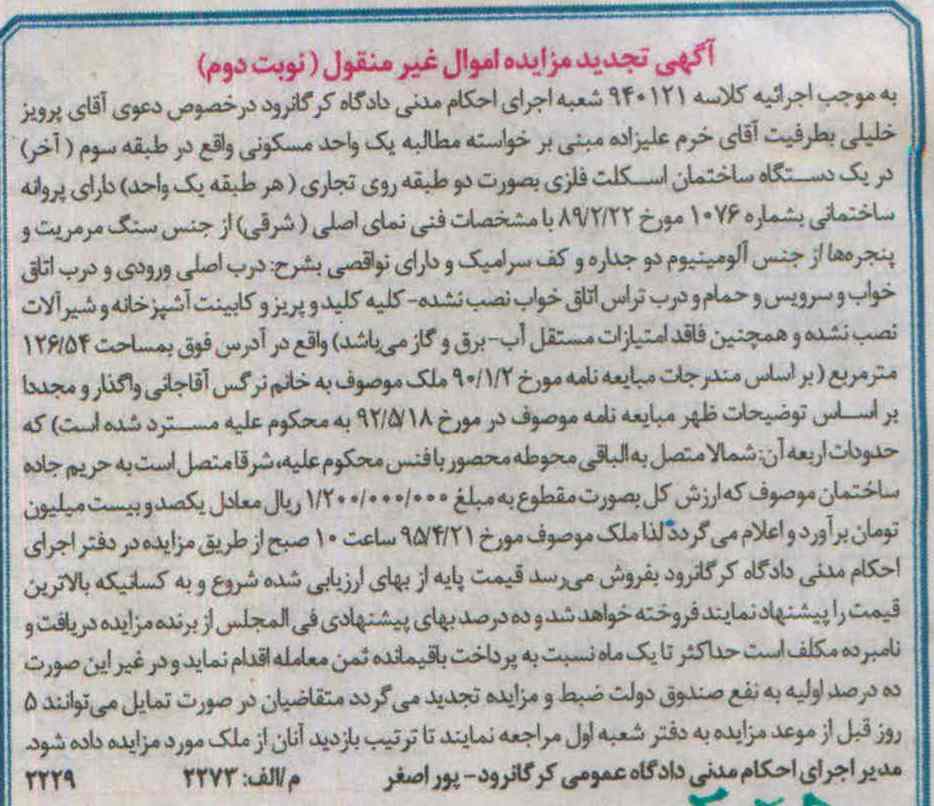 آگهی تجدید مزایده اموال غیر منقول (نوبت دوم)
به موجب اجرائیه کلاسه ۹۴۰۱۲۱ شعبه اجرای احکام مدنی دادگاه کرگانرود درخصوص دعوی آقای پرویز
خلیلی بطرفیت آقای خرم علیزاده مبنی بر خواسته مطالبه یک واحد مسکونی واقع در طبقه سوم (آخر)
در یک دستگاه ساختمان اسکلت فلزی بصورت دو طبقه روی تجاری (هر طبقه یک واحد) دارای پروانه
ساختمانی بشماره ۱۰۷۶ مورخ ۸۹/۲/۲۲ با مشخصات فنی نمای اصلی (شرقی) از جنس سنگ مرمریت و
پنجره‌ها از جنس آلومینیوم دو جداره و کف سرامیک و دارای نواقصی بشرح: درب اصلی ورودی و درب اتاق
خواب و سرویس و حمام و درب تراس اتاق خواب نصب نشده- کلیه کلید و پریز و کابینت آشپزخانه و شیرآلات
نصب نشده و همچنین فاقد امتیازات مستقل آب-برق و گاز می‌باشد) واقع در آدرس فوق بمساحت ۱۲۶/۵۴
مترمربع (بر اساس مندرجات مبایعه نامه مورخ ۹۰/۱/۲ ملک موصوف به خانم نرگس آقاجانی واگذار و مجددا
بر اساس توضیحات ظهر مبایعه نامه موصوف در مورخ ۹۲/۵/۱۸ به محکوم علیه مسترد شده است) که
حدودات اربعه آن: شمالا متصل به الباقی محوطه محصور با فنس محکوم علیه، شرقا متصل است به حریم جاده
ساختمان موصوف که ارزش کل بصورت مقطوع به مبلغ ۱/۲۰۰/۰۰۰/۰۰۰ ریال معادل یکصد و بیست میلیون
تومان برآورد و اعلام می گردد لذا ملک موصوف مورخ ۹۵/۴/۲۱ ساعت ۱۰ صبح از طریق مزایده در دفتر اجرای
احکام مدنی دادگاه کرگانرود بفروش می‌رسد قیمت پایه از بهای ارزیابی شده شروع و به کسانیکه بالاترین
قیمت را پیشنهاد نمایند فروخته خواهد شد و ده درصد بهای پیشنهادی فی المجلس از برنده مزایده دریافت و
نامبرده مکلف است حداکثر تا یک ماه نسبت به پرداخت باقیمانده ثمن معامله اقدام نماید و در غیر این صورت
ده درصد اولیه به نفع صندوق دولت ضبط و مزایده تجدید می گردد متقاضیان در صورت تمایل می‌توانند ۵
روز قبل از موعد مزایده به دفتر شعبه اول مراجعه نمایند تا ترتیب بازدید آنان از ملک مورد مزایده داده شود.
مدیر اجرای احکام مدنی دادگاه عمومی کرگانرود- پور اصغر م/الف: ۲۲۷۳ ۲۲۲۹